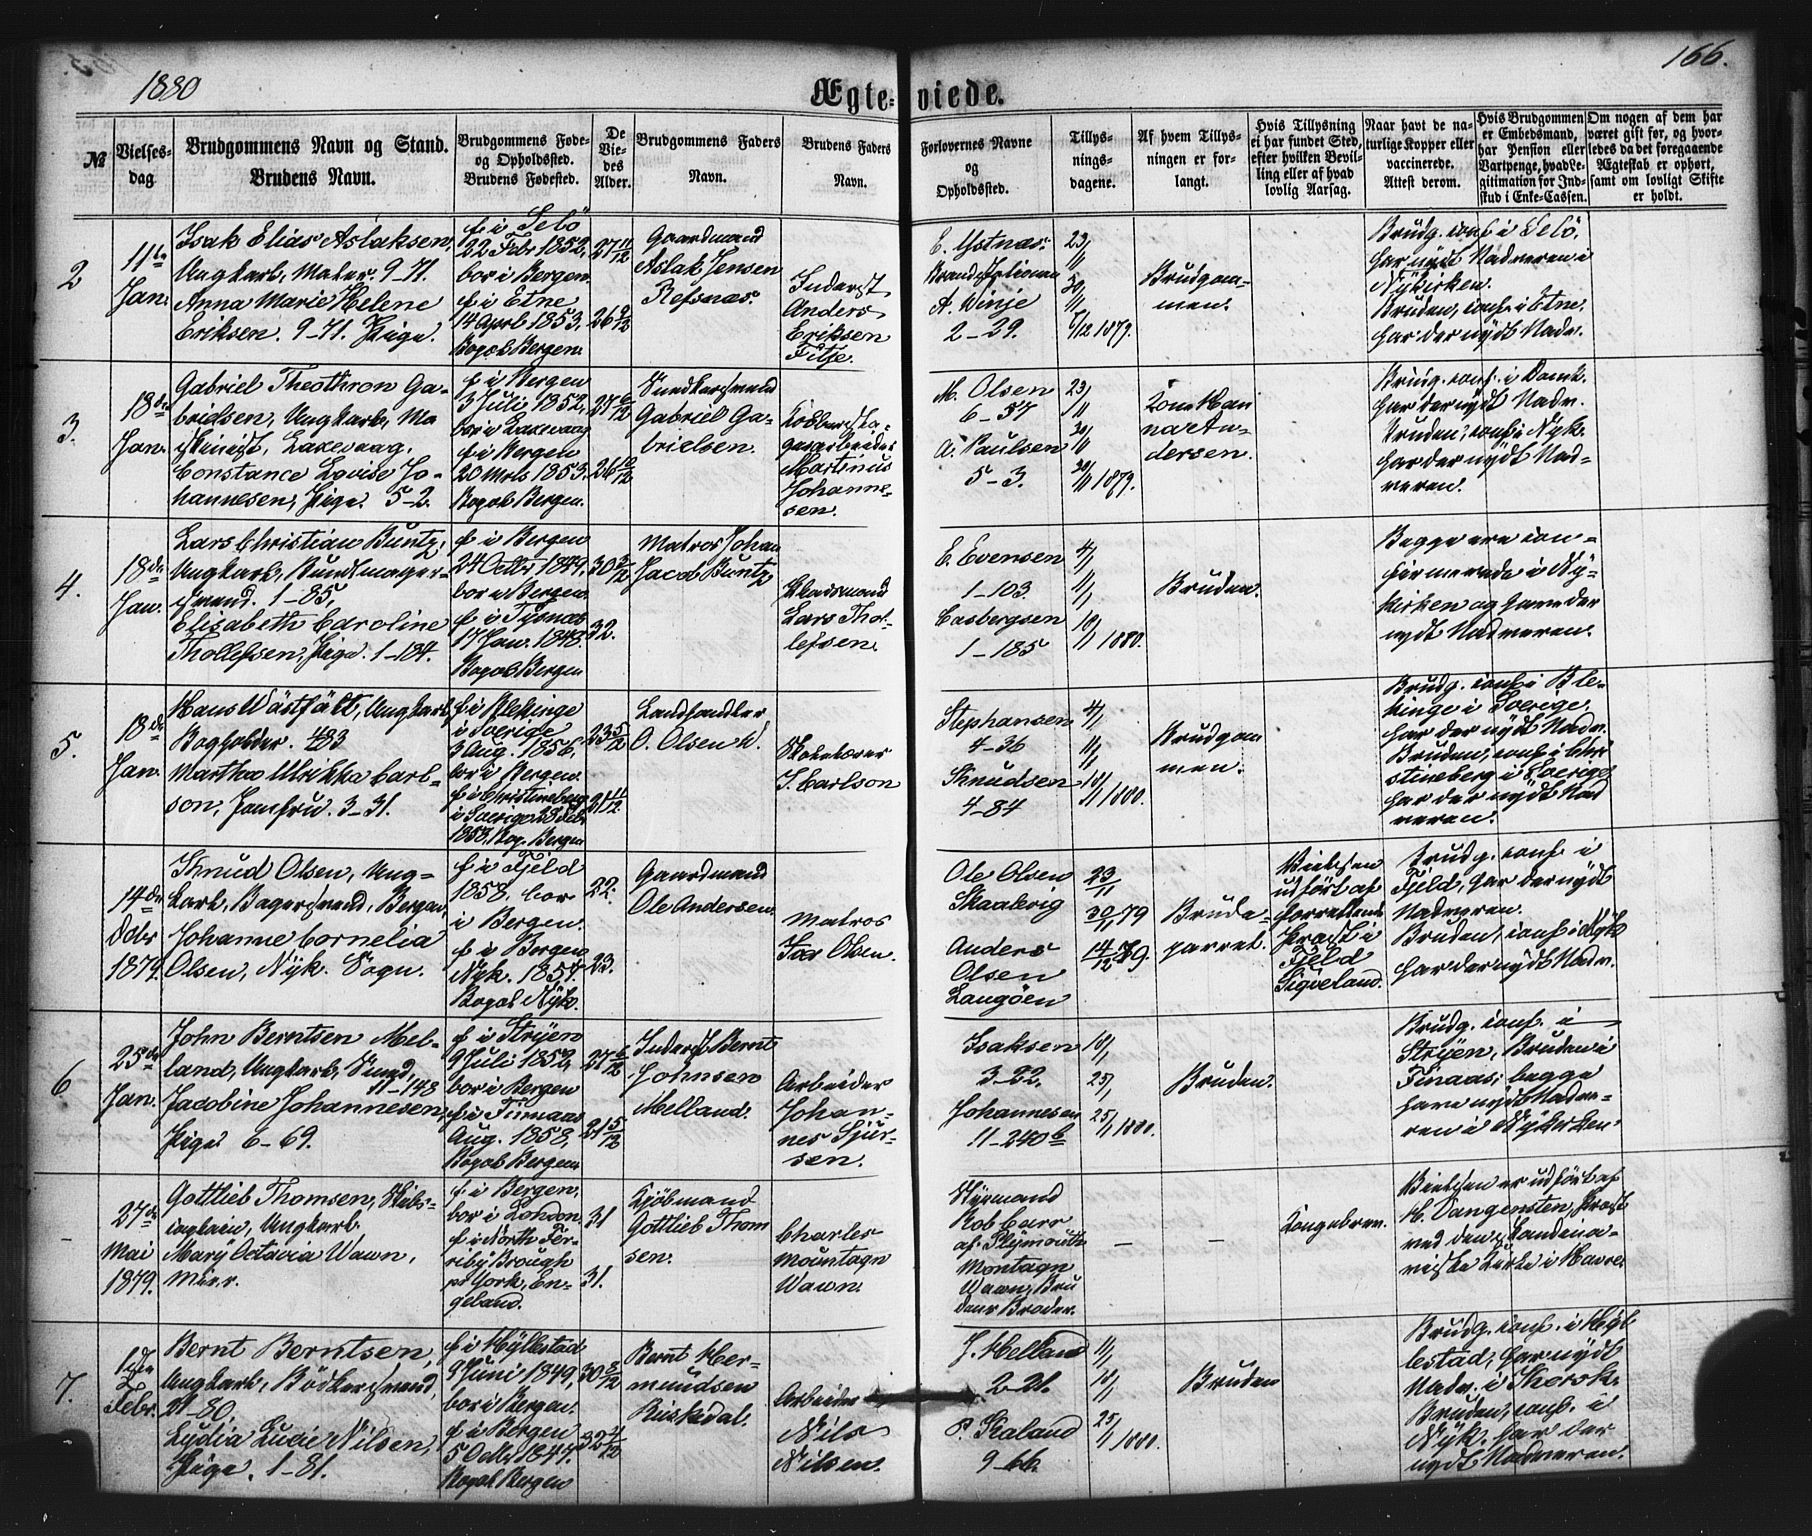 1880
166.
Ægte-viede.
№
Vielses-
dag.
Brudgommens Navn og Stand.
Brudens Navn.
Brudgommens Føde-
og Opholdssted.
Brudens Fødested.
De
Vie-
des
Alder.
Brudgommens Faders
Navn.
Brudens Faders
Navn.
Forlovernes Navne
og
Opholdssted.
Tillys-
nings-
dagene.
Af hvem Tillys-
ningen er for-
langt.
Hvis Tillysning
ei har fundet Sted,
efter hvilken Bevil-
ling eller af hvad
lovlig Aarsag.
Naar havt de na-
turlige Kopper eller
vaccinerede.
Attest derom.
Hvis Brudgommen
er Embedsmand,
har Pension eller
Vartpenge, hvad Le-
gitimation for Ind-
skud i Enke-Cassen.
Om nogen af dem har
været gift før, og hvor-
ledes da det foregaaende
Ægteskab er ophørt,
samt om lovligt Skifte
er holdt.
2
11te
Jan.
Isak Elias Aslaksen,
Ungkarl, Maler. 9-71.
Anna Marie Helene
Eriksen. 9-71. Pige.
f. i Selö
22 Febr 1852,
bor i Bergen.
f. i Etne
14 April 1853.
Bopæl Bergen.
27 11/12
26 9/12
Gaardmand
Aslak Jensen
Refsnæs.
Inderst
Anders
Eriksen
Fitje.
E. Ystnæs.
A. Winje
2-29.
23/11
30/11
7/12 1879.
Brudgom-
men.
Brudg. conf. i Selö,
har nydt Nadveren i
Nykirken.
Bruden, conf. i Etne,
har der nydt Nadv.
3.
18de
Jan.
Gabriel Theothron Ga-
brielsen, Ungkarl, Ma
skinist, Laxevaag.
Constance Lovise Jo-
hannesen, Pige. 5-2.
f. i Bergen
3 Juli 1852,
bor i Laxevaag
f. i Bergen
20 Mrts 1853.
Bopæl Bergen.
27 6/12
26 10/12
Gabriel Ga-
brielsen.
Martinus
Johanne-
sen.
M. Olsen
6-57
A. Paulsen
5-3.
23/11
30/11 1879.
Brudg. conf. i Domk.
har der nydt Nadv.
Bruden, conf. i Nyk.
har der nydt Nad-
veren.
4.
18de
Jan.
Lars Christian Buntz,
Ungkarl, Buntmager-
svend. 1-85,
Elisabeth Caroline
Thollefsen, Pige. 1-184.
f. i Bergen
24 Octbr 1849,
bor i Bergen.
f. i Tysnæs
17 Jan. 1848.
Bopæl Bergen
30 3/12
32.
Matros Johan
Jacob Buntz
Lars Thol-
lefsen.
E. Evensen
1-103
Casbergsen
1-185
4/1
11/1
18/1 1880.
Bruden.
Begge ere con-
firmerede i Ny-
kirken og have der
nydt Nadveren.
5.
18de
Jan.
Hans Wästfält, Ungkarl,
Bogholder.
Martha Ulrikka Carl-
son, Jomfru. 3-31.
f. i Blekinge
i Sverige
3 Aug. 1856,
bor i Bergen.
f. i Christineberg
i Sverige 28 Febr
1858, Bop. Bergen
23 5/12
21 11/12
Landhandler
O. Olsen
J. Carlson
Stephansen
4-36
Knudsen
4-84
4/1
11/1
18/1 1880.
Brudgom
men.
Brudg. conf. i Ble-
kinge i Sverige,
har der nydt Nadv.
Bruden, conf. i Chri
stineberg i Sverige,
har der nydt Nad
veren.
14de
Dcbr
1879.
Knud Olsen, Ung-
karl, Bagersvend, Bergen,
Johanne Cornelia
Olsen, Nyk. Sogn.
f. i Fjeld
1858, bor
i Bergen.
f. i Bergen
Nyk. 1857
Bopæl Nyk.
22.
23.
Gaardmand
Ole Andersen.
Matros
Olsen.
Ole Olsen
Skaalevig
Anders
Olsen
Langöen
23/11
30/11 79
14/12 79.
Brude-
parret.
Vielsen
udfört af
Præst i
Fjeld
Sigveland.
Brudg. conf. i
Fjeld, har der nydt
Nadveren.
Bruden, conf. i Nyk
har der nydt Nadv.
6
25de
Jan.
John Berntsen Mel-
land, Ungkarl, Sund,
11-148
Jacobine Johannesen,
Pige 6-69.
f. i Stryen
9 Juli 1852,
bor i Bergen
f. i Finnaas
Aug. 1858,
Bopæl Bergen
27 6/12
21 5/12
Inderst Bernt
Johnsen
Melland.
Arbeider
Johan-
nes Sjur-
sen.
Isaksen
3-22.
Johannesen
11-240b
18/1
25/1
25/1 1880.
Bruden.
Brudg. conf. i
Stryen, Bruden i
Finaas; begge
have nydt Nadve-
ren i Nykirken.
-
27de
Mai
1879.
Gottlieb Thomsen, Skibs-
captain, Ungkarl.
Mary Octavia Wawn,
f. i Bergen,
bor i London.
f. i North Fer-
riby Brough
pr York, En-
geland.
31
31.
Kjöbmand
Gottlieb Thom
sen.
Charles
Mountagn
Wawn.
Styrmand
Rob Carr
af Plymouth
Montagn
Wawn, Bru
dens Broder.
-
-
Kongebrev.
Vielsen er udfört af
H. Vangensten, Præst
ved den skandina-
viske Kirke i Havre.
7.
1ste
Febr.
Bernt Berntsen,
Ungkarl, Bödkersvend,
21-80.
Lydia Lucie Nilsen,
Pige. 1-81.
f. i Hyllestad
9 Juni 1849,
bor i Bergen.
f. i Bergen
5 Octbr 1847.
Bopæl Bergen
30 8/12
32 4/12
Bernt Her-
mundsen
Risledal.
Arbeider
Nils
Nilsen.
J. Melland
2-21.
P. Kaland
9-66.
11/1
18/1
25/1 1880.
Bruden
Brudg. conf. i Hyl
lestad, har nydt
Nadv. i Korsk.
Bruden, conf. i
Nyk. har der
nydt Nadveren.